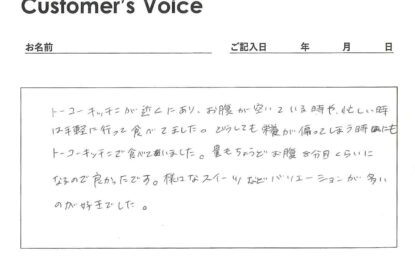 Customer's Voice
お名前 ご記入日 年 月 日
トーコーキッチンが近くにあり、お腹が空いている時や、忙しい時
は手軽に行って食べてました。どうしても栄養が偏ってしまう時にも
トーコーキッチンで食べていました。量もちょうどお腹8分目くらいに
なるので良かったです。様々なスイーツなどバリエーションが多い
のが好きでした。